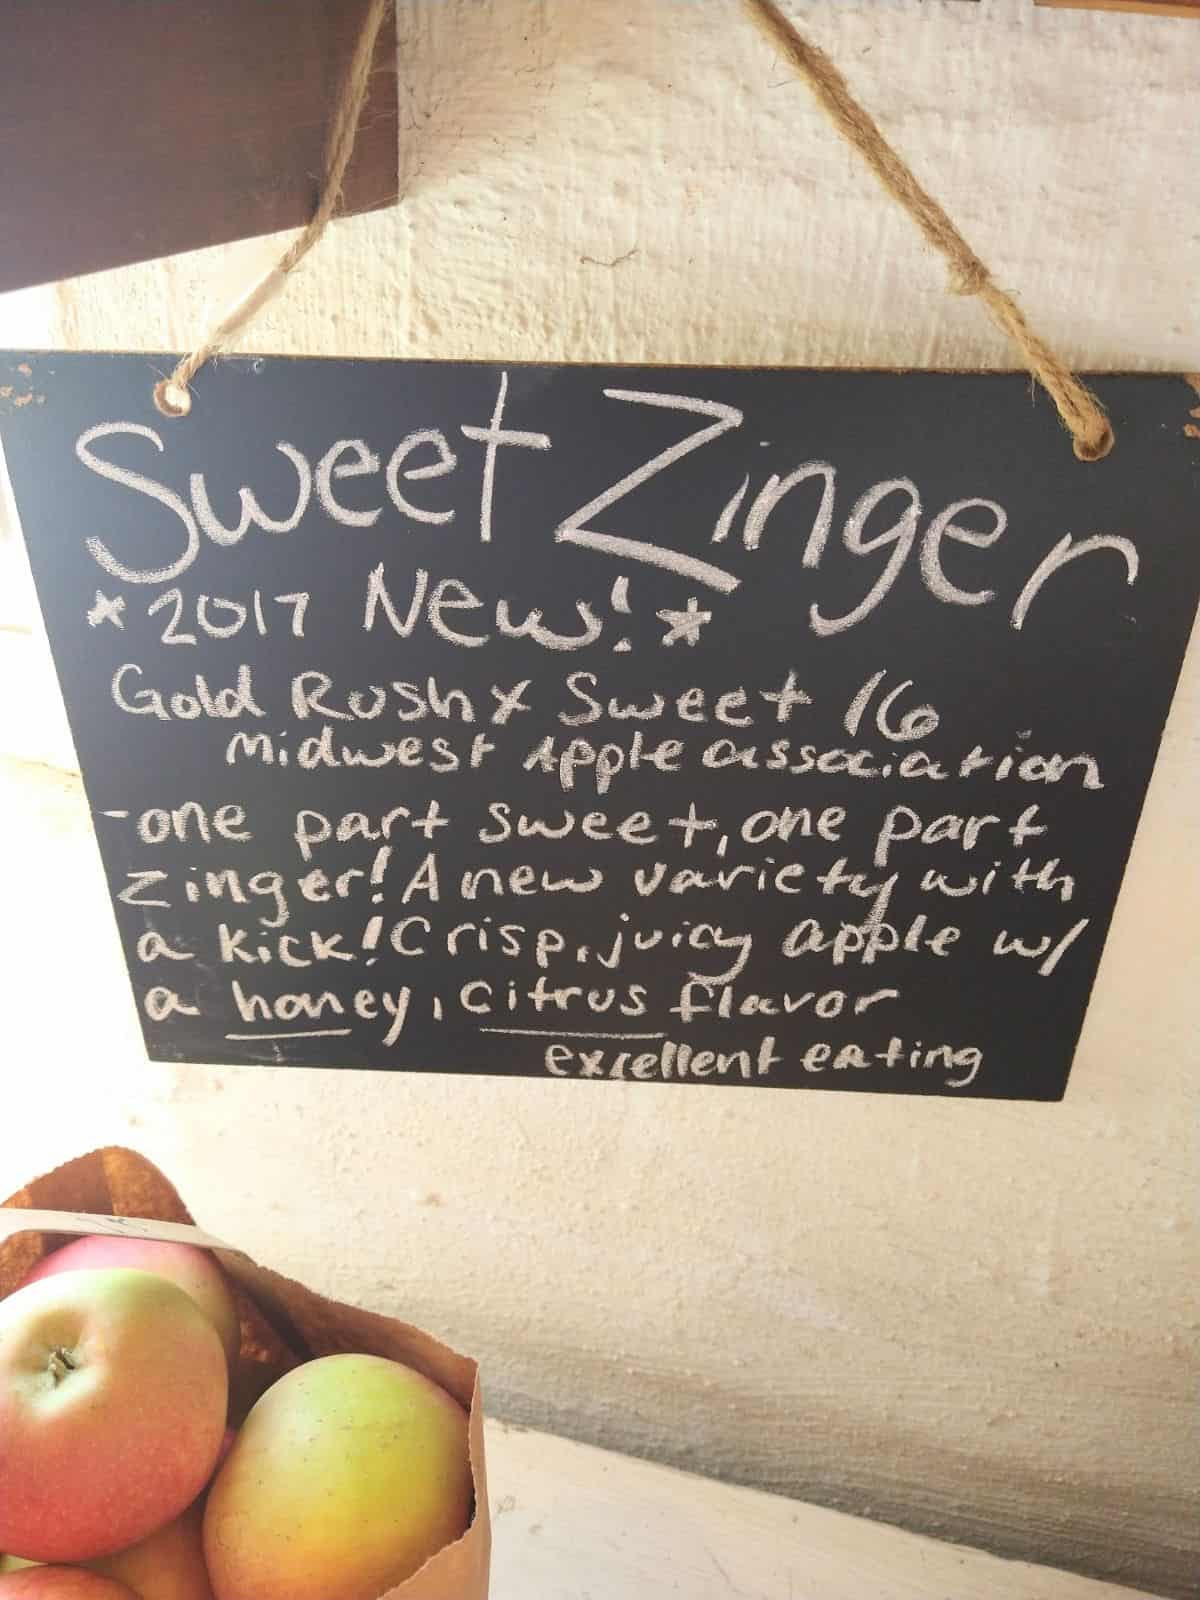 Sweet Zinger
*2017 New!*
Gold Rush x Sweet 16
Midwest Apple association
-one part sweet, one part
zinger! A new variety with
a kick! Crisp, juicy apple w/
a honey, citrus flavor
excellent eating